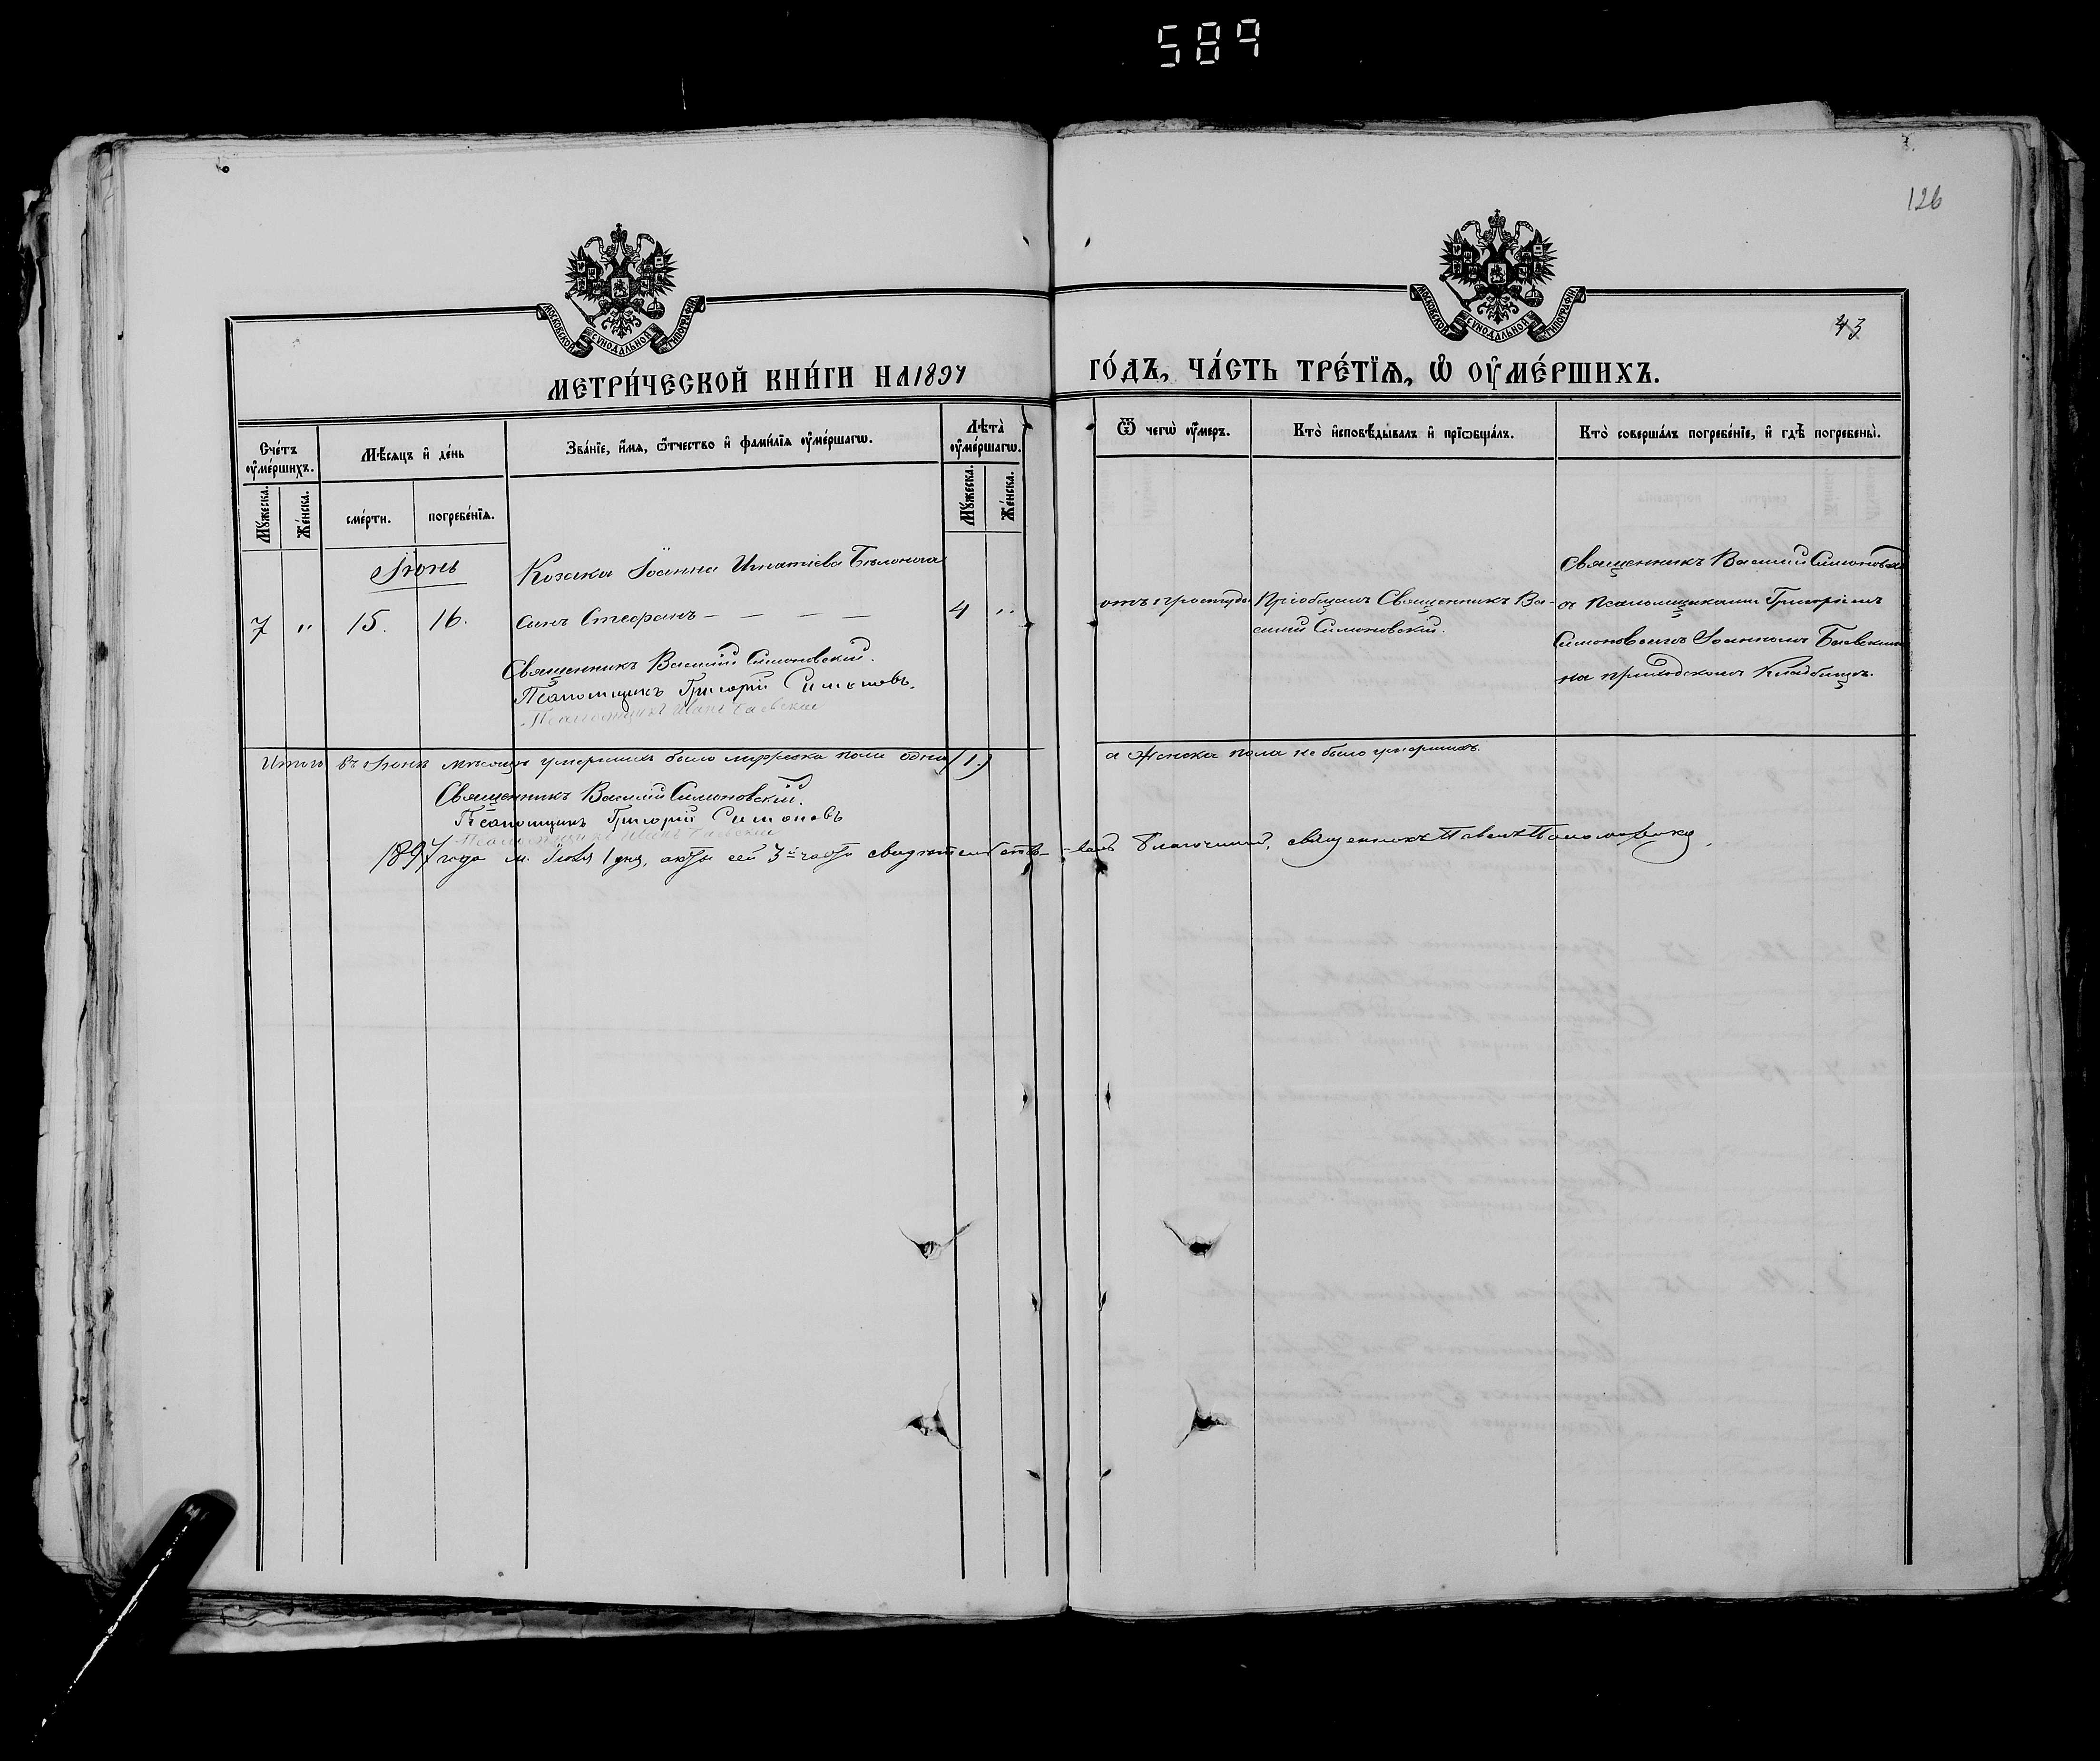 589
126
МОСКОВСКОЙ СѴНОДАЛЬНОЙ ТИПОГРАФІИ
МОСКОВСКОЙ СѴНОДАЛЬНОЙ ТИПОГРАФІИ
43
МЕТРИ́ЧЕСКОЙ КНИ́ГИ НА 1897 ГО́ДЪ, ЧА́СТЬ ТРЕ́ТЇѦ, Ѡ ОУ҆МЕ́РШИХЪ.
Сче́тъ оу҆ме́ршихъ.
Мꙋ́жеска.
Же́нска.
Мѣ́сяцъ и҆ де́нь
сме́рти.
погребе́нїѧ.
Зва́нїе, и҆́мѧ, ѻ҆́тчество и҆ фами́лїѧ оу҆ме́ршагѡ.
Лѣта̀ оу҆ме́ршагѡ.
Мꙋ́жеска.
Же́нска.
Ѿ чегѡ̀ оу҆́меръ.
Кто̀ и҆сповѣ́дывалъ и҆ прїѡбща́лъ.
Кто̀ соверша́лъ погребе́нїе, и҆ гдѣ̀ погребены̀.
Іюнь
Козака Іоанна Игнатіева
7 " 15. 16. сынъ Стефанъ — — — — 4 "
Священникъ Василій Симоновскій.
Псаломщикъ Григорій Симоновъ.
Псаломщикъ Иванъ Баевскій
отъ простуды
Пріобщалъ Священникъ Ва-
силий Симоновскій.
Священникъ Василій Симоновскій
съ Псаломщиками Григоріемъ
Симоновымъ Іоанномъ Баевскимъ
на приходскомъ Кладбищѣ.
Итого въ Іюнѣ мѣсяцѣ умершихъ было мужеска пола одинъ (1.) а Женска пола не было умершихъ.
Священникъ Василій Симоновскій.
Псаломщикъ Григорій Симоновъ
Псаломщикъ Иванъ Баевскій
1897 года м. Іюля 1 дня, акты сей 3й части свидѣтельство- -валъ Благочинный, священникъ Павелъ